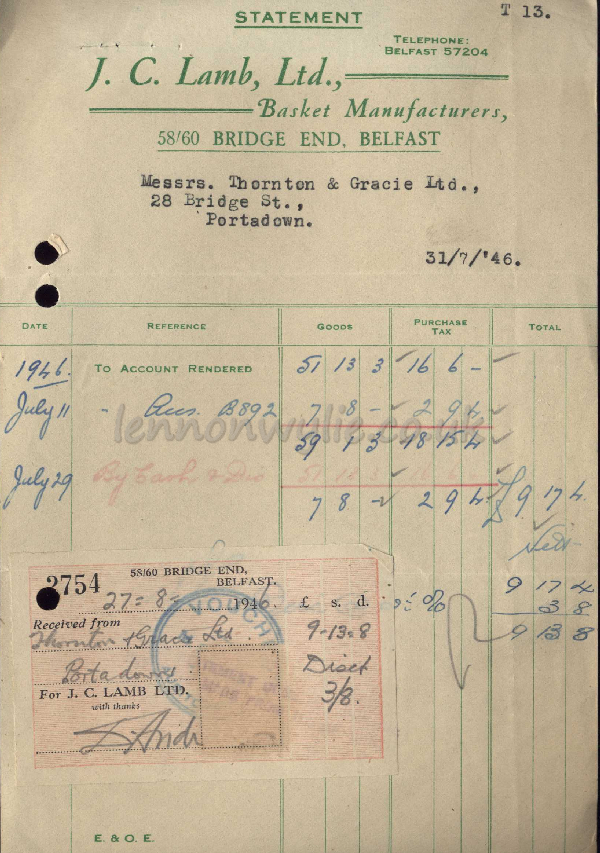 STATEMENT
T 13.
TELEPHONE:
BELFAST 57204
J. C. Lamb, Ltd.,
Basket Manufacturers,
58/60 BRIDGE END, BELFAST
Messrs. Thornton & Gracie Ltd.,
28 Bridge St.,
Portadown.
31/7/'46.
DATE REFERENCE GOODS PURCHASE TAX TOTAL
1946. TO ACCOUNT RENDERED 51 13 3 16 6 -
July 11 " B892 7 8 - 2 9 4
lennonwylie.co.uk
59 1 3 18 15 4
July 29 By Cash & Dis 51 13 3 16 6 -
7 8 - 2 9 4 9 17 4
Nett
9 17 4
3 8
9 13 8
3754
58/60 BRIDGE END,
BELFAST.
27 = 8 = 1946 £ s. d.
Received from
Thornton & Gracie Ltd 9-13-8
Portadown Disct
3/8.
For J. C. LAMB LTD.
with thanks
E. & O. E.